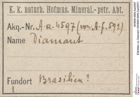 K. k. naturh. Hofmus. Mineral.-petr. Abt.
Akq.-Nr. A.a. 4597 (von A.f. 592)
Name Diamant
Fundort Brasilien?